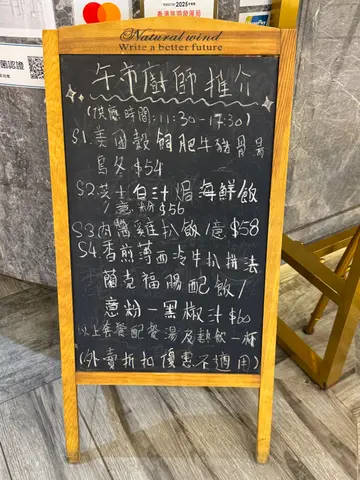 mastercard
2025
Natural wind
Write a better future
午市廚師推介
(供應時間:11:30-17:30)
S1.美國穀飼肥牛豬骨湯
烏冬 $54
S2.芝士白汁焗海鮮飯
/意粉 $56
S3.肉醬雞扒飯/意 $58
S4.香煎薄西冷牛扒拼法
蘭克福腸配飯/
意粉-黑椒汁 $60
以上套餐配餐湯及熱飲一杯
(外賣折扣優惠不適用)